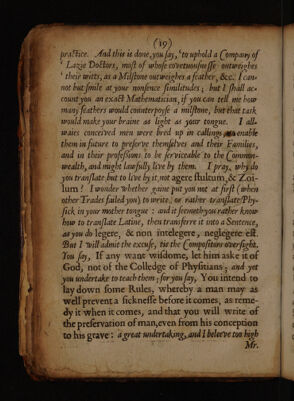 (19)
practice. And this is done, you say, to uphold a Company of
Lazie Doctors, most of whose covetuousnesse outweighes
their witts, as a Milstone outweighes a feather, &c. I can-
not but smile at your nonsence similitudes; but I shall ac-
count you an exact Mathematician, if you can tell me how
many feathers would counterpoise a milstone, but that task
would make your braine as light as your tongue. I all-
waies conceived men were bred up in callings to enable
them in future to preserve themselves and their Families,
and in their professions to be serviceable to the Common-
wealth, and might lawfully live by them. I pray, why do
you translate but to live by it, not agere stultum, & Zoi-
lum? I wonder whether gaine put you not at first (when
other Trades failed you) to write, or rather translate Phy-
sick in your mother tongue: and it seemeth you rather know
how to translate Latine, then transferre it into a Sentence,
as you do legere, & non intelegere, neglegere est.
But I will admit the excuse, tis the Compositors oversight.
You say, If any want wisdome, let him aske it of
God, not of the Colledge of Physitians; and yet
you undertake to teach them; for you say, You intend to
lay down some Rules, whereby a man may as
well prevent a sicknesse before it comes, as reme-
dy it when it comes, and that you will write of
the preservation of man, even from his conception
to his grave: a great undertaking, and I beleeve too high
Mr.